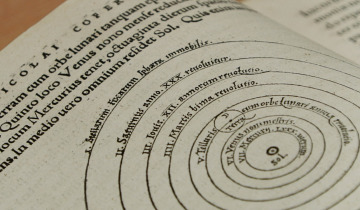 NICOLAI COPER
terram cum orbe lunari tanquam epi
Quinto loco Venus nono mense reducitur
locum Mercurius tenet, octuaginta dierum spacio
In medio uero omnium residet Sol.
I. Stellarum fixarum sphæra immobilis.
II. Saturnus anno. XXX. reuoluitur.
III. Iouis. XII. annorum reuolutio.
IIII. Martis bima reuolutio.
V. Telluris
cum orbe lunari annua
Terra
VI. Venus nonimestris.
VII. Mercurii
Sol.